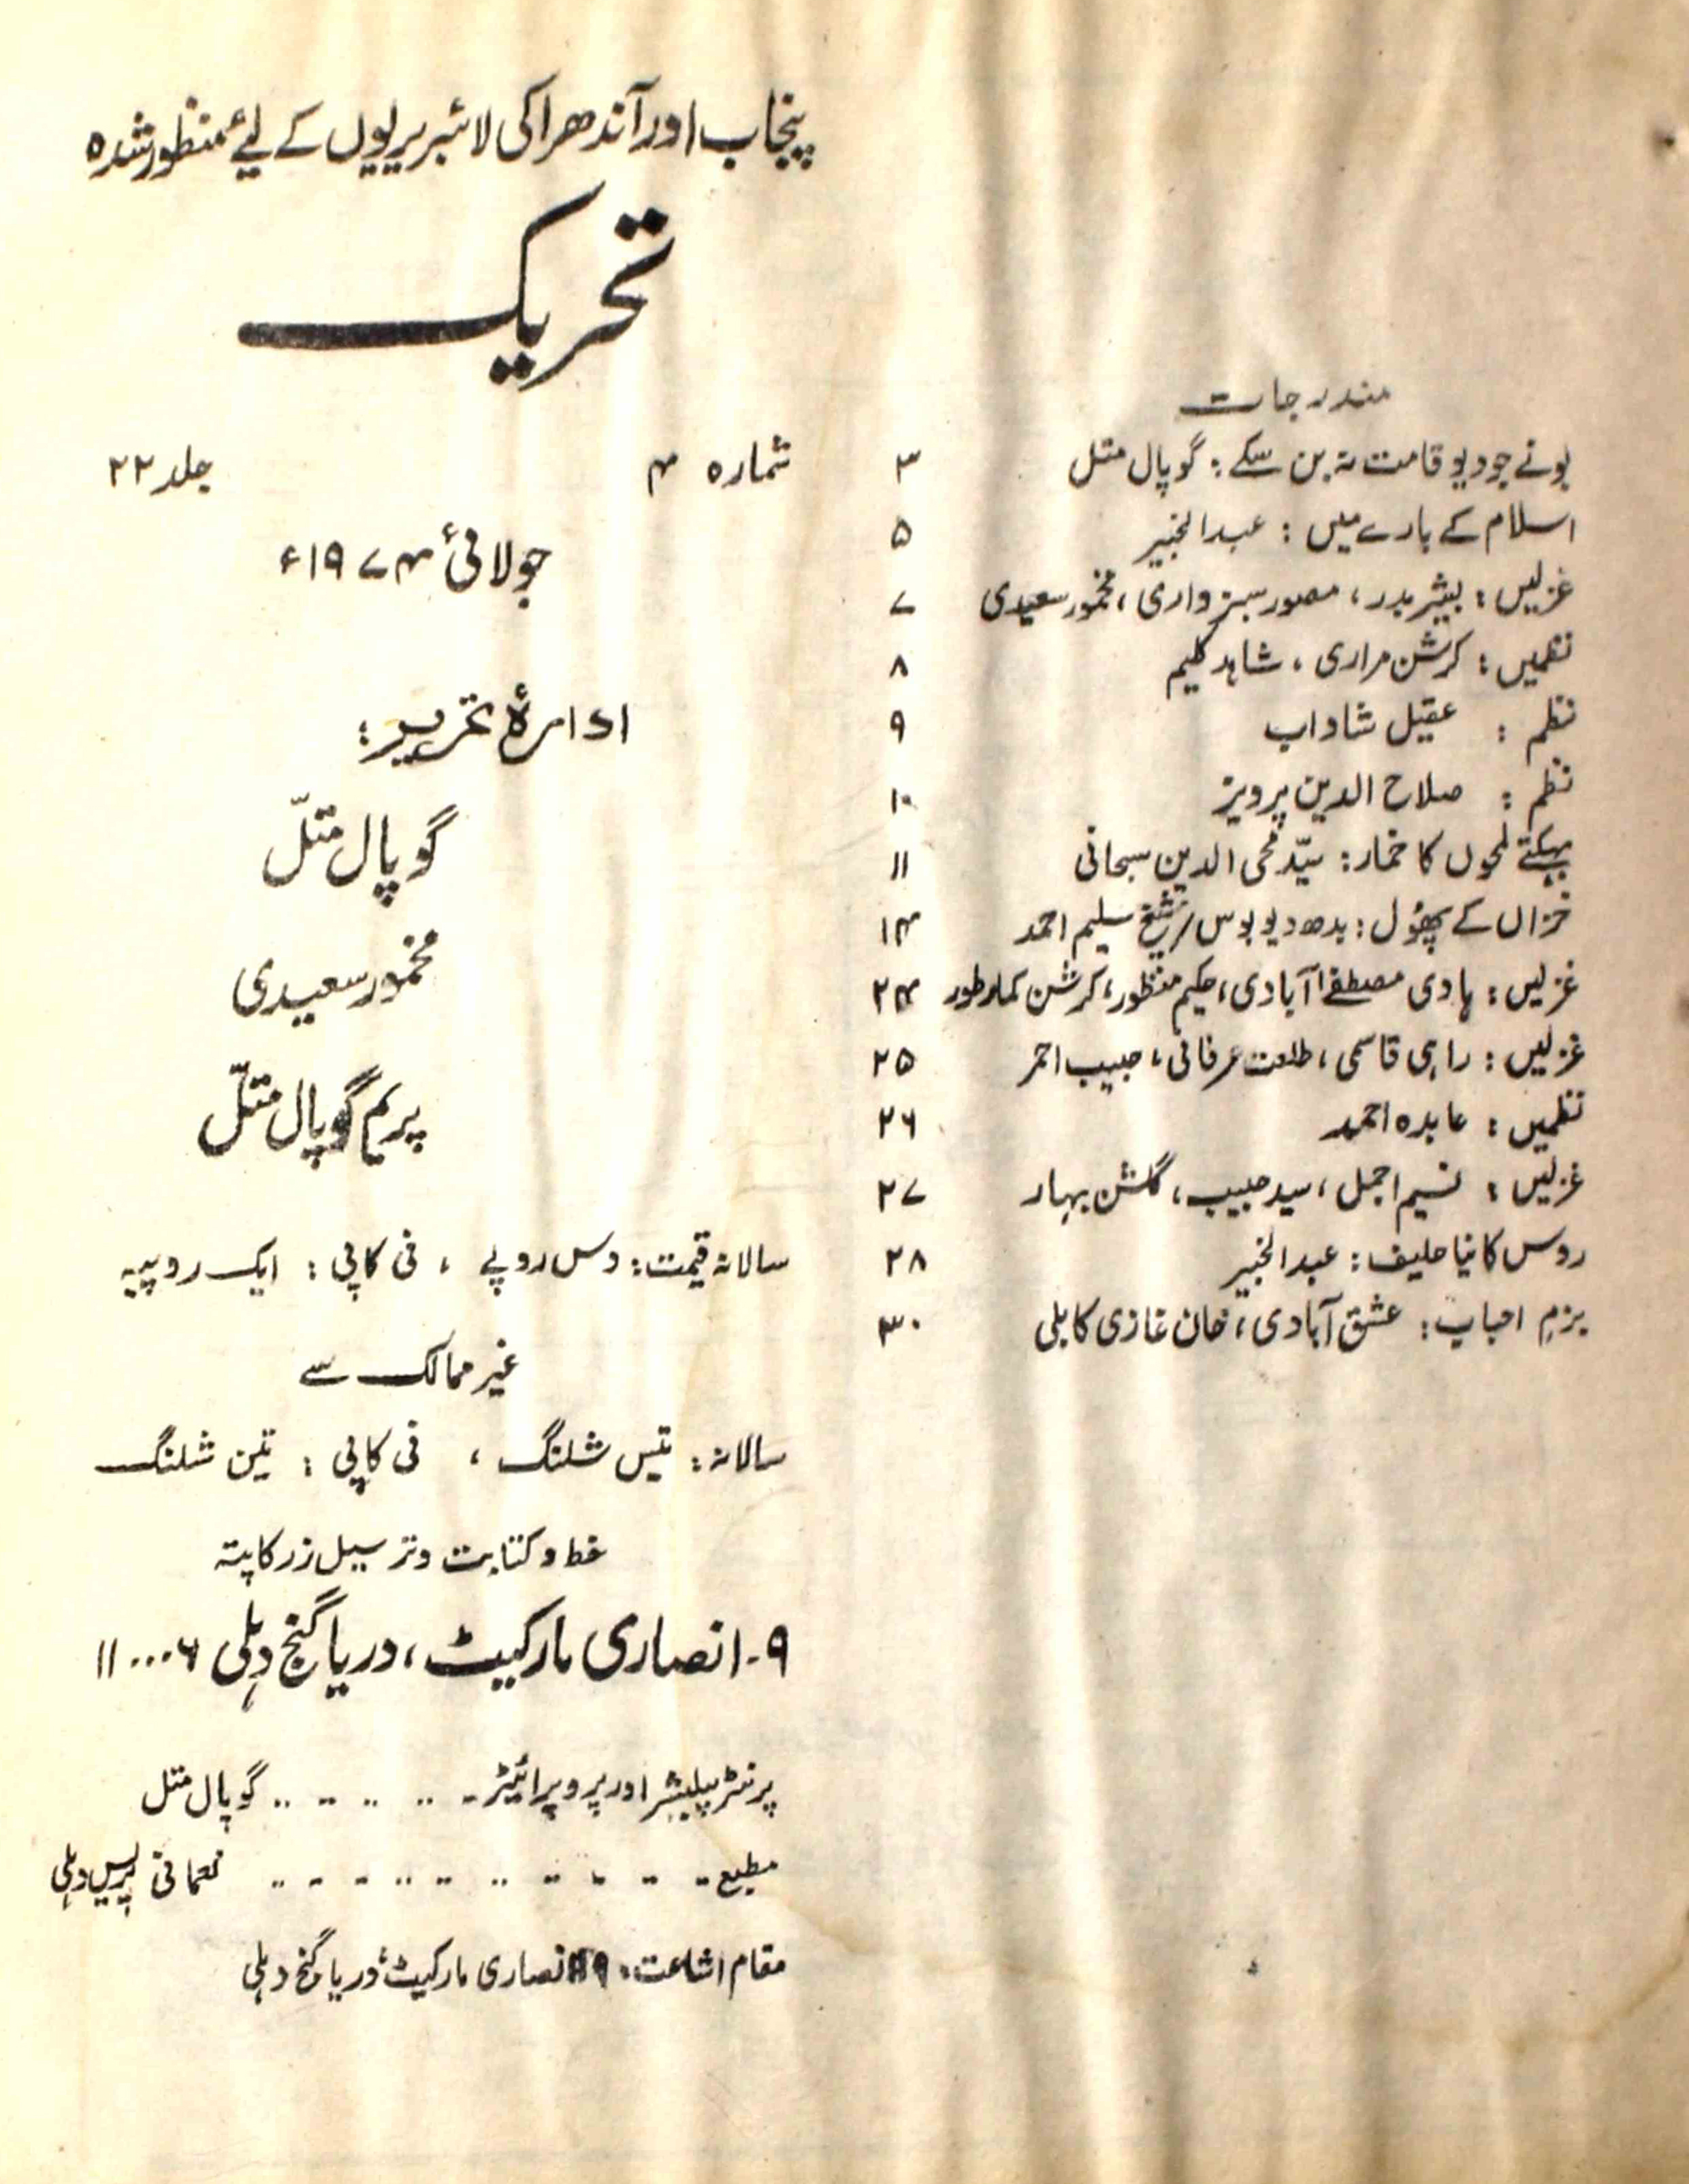 مندرجات
بونے جو دیو قامت نہ بن سکے : گوپال متل ۳
اسلام کے بارے میں : عبدالخبیر ۵
غزلیں : بشیر بدر، مصور سبزواری، مخمور سعیدی ۷
نظمیں : کرشن مراری، شاہد کلیم ۸
نظم : عقیل شاداب ۹
نظم : صلاح الدین پرویز ۱۰
بہکتے لمحوں کا خمار : سیّد محی الدین سبحانی ۱۱
خزاں کے پھول : بدھ دیو بوس / شیخ سلیم احمد ۱۴
غزلیں : ہادی مصطفےٰ آبادی، حکیم منظور، کرشن کمار طور ۲۴
غزلیں : راہی قاسمی، طلعت عرفانی، حبیب احمر ۲۵
نظمیں : عابدہ احمد ۲۶
غزلیں : نسیم اجمل، سید حبیب، گلشن بہار ۲۷
روس کا نیا حلیف : عبدالخبیر ۲۸
بزمِ احباب : عشق آبادی، خان غازی کابلی ۳۰
پنجاب اور آندھرا کی لائبریریوں کے لئے منظور شدہ
تحریک
شمارہ ۴ جلد ۲۲
جولائی ۱۹۷۴ء
ادارۂ تحریر :
گوپال متلّ
مخمور سعیدی
پریم گوپال متلّ
سالانہ قیمت : دس روپے ، فی کاپی : ایک روپیہ
غیر ممالک سے
سالانہ : تیس شلنگ ، فی کاپی : تین شلنگ
خط و کتابت و ترسیل زر کا پتہ
۹- انصاری مارکیٹ، دریا گنج دہلی ۱۱۰۰۰۶
پرنٹر پبلیشر اور پروپرائیٹر - .. .. .. .. .. گوپال متل
مطبع - .. .. .. .. .. .. .. .. .. نعمانی پریس دہلی
مقام اشاعت : ۹ انصاری مارکیٹ دریا گنج دہلی